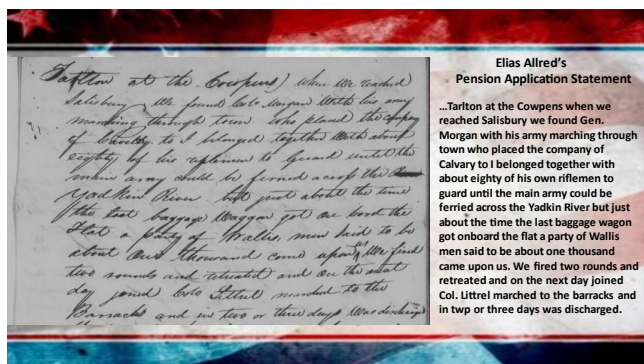 Tarlton at the Cowpens) when we reached
Salisbury we found Colo Morgan With his army
marching through town who placed the company
of Cavalry to I belonged together With about
eighty of his riflemen to Guard until the
main army could be ferried across the
Yadkin River but just about the time
the last baggage Waggon got on bord the
Flat a party of Wallis men said to be
about One thousand come upon us We fired
two rounds and retreated and on the next
day joined Colo Littrel marched to the
Barracks and in two or three days Was discharged
Elias Allred's
Pension Application Statement
...Tarlton at the Cowpens when we
reached Salisbury we found Gen.
Morgan with his army marching through
town who placed the company of
Calvary to I belonged together with
about eighty of his own riflemen to
guard until the main army could be
ferried across the Yadkin River but just
about the time the last baggage wagon
got onboard the flat a party of Wallis
men said to be about one thousand
came upon us. We fired two rounds and
retreated and on the next day joined
Col. Littrel marched to the barracks and
in twp or three days was discharged.